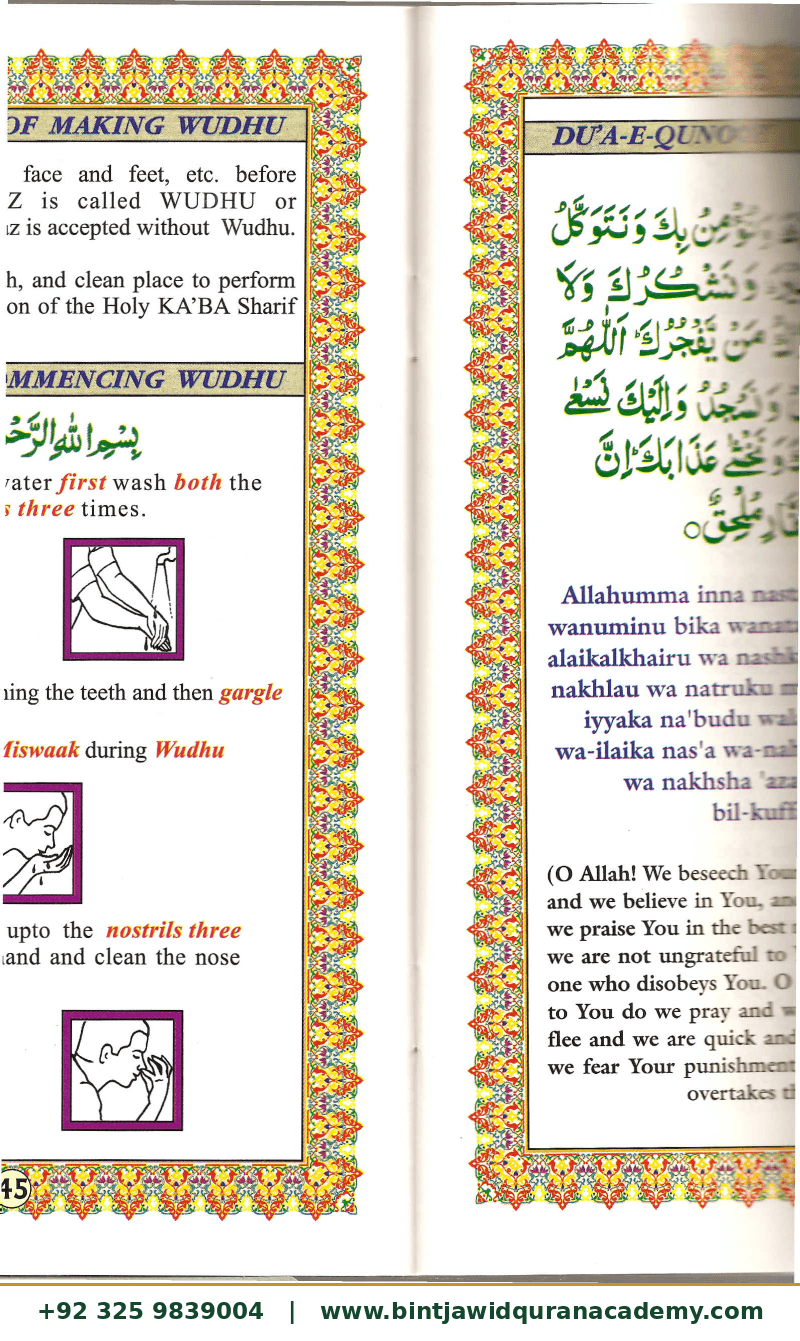 OF MAKING WUDHU
face and feet, etc. before
Z is called WUDHU or
is accepted without Wudhu.
and clean place to perform
on of the Holy KA’BA Sharif
MMENCING WUDHU
بِسْمِ اللهِ
first wash both the
three times.
the teeth and then gargle
during Wudhu
upto the nostrils three
and clean the nose
45
DU’A-E-QUNO
بِكَ وَنَتَوَكَّلُ
وَنَشْكُرُكَ وَلَا
مَنْ يَّفْجُرُكَ اَللّٰهُمَّ
وَنَسْجُدُ وَاِلَيْكَ نَسْعٰى
نَخْشٰى عَذَابَكَ اِنَّ
مُلْحِقٌ
Allahumma inna
wanuminu bika
alaikalkhairu wa
nakhlau wa natruku
iyyaka na'budu
wa-ilaika nas'a
wa nakhsha
bil-kuff
(O Allah! We beseech
and we believe in You,
we praise You in the best
we are not ungrateful to
one who disobeys You. O
to You do we pray and
flee and we are quick and
we fear Your punishment
overtakes
+92 325 9839004 | www.bintjawidquranacademy.com